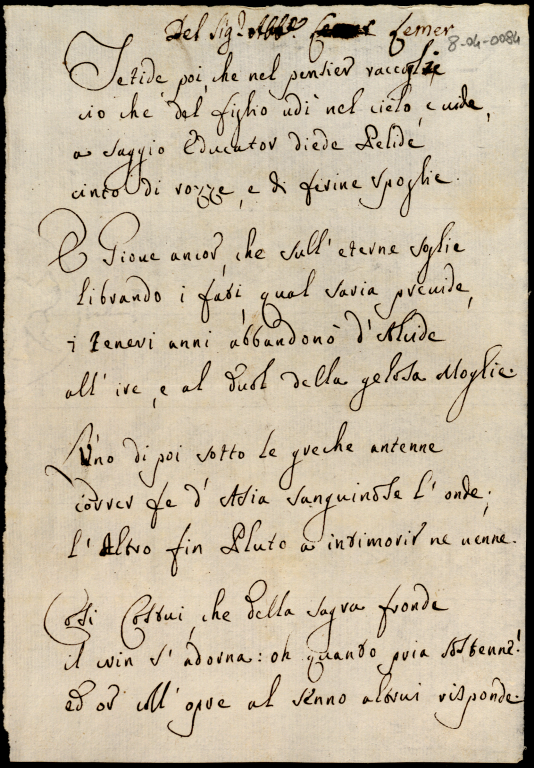 Del Sig.r Abb.e Lemer
8-04-0084
Tetide poi, che nel pensier raccoglie
ciò che del figlio udì nel cielo, e uide,
a saggio Educator diede Pelide
cinto di rozze, e di ferine spoglie.
E Gioue ancor, che sull' eterne soglie
librando i fati qual saria preuide,
i teneri anni abbandonò d' Alcide
all' ire, e al duol della gelosa Moglie.
L'uno di poi sotto le greche antenne
correr fe d' Asia sanguinose l' onde;
l' Altro fin Pluto a intimorir ne uenne.
Così Costui, che della sagra fronde
il crin s' adorna: oh quanto pria sostenne!
ed or coll' opre al senno altrui risponde.